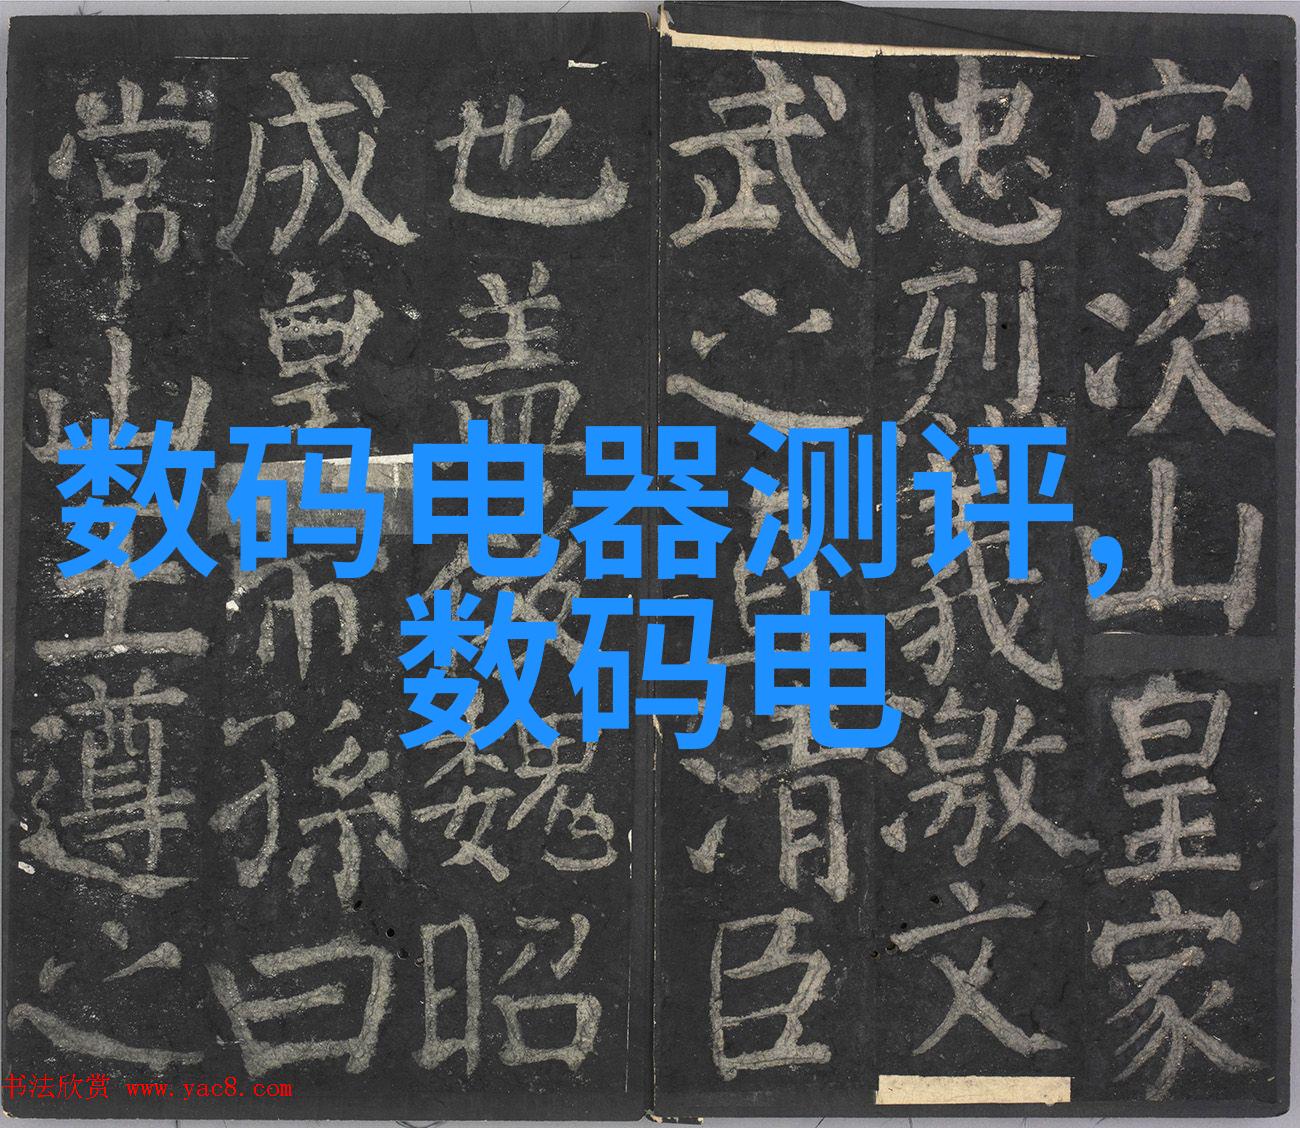 字次山皇家
忠列義激文
武之直清臣
也盖後魏昭
成皇帝孫曰
常山王遵之
数码电器测评，
数码电
书法欣赏 www.yac8.com